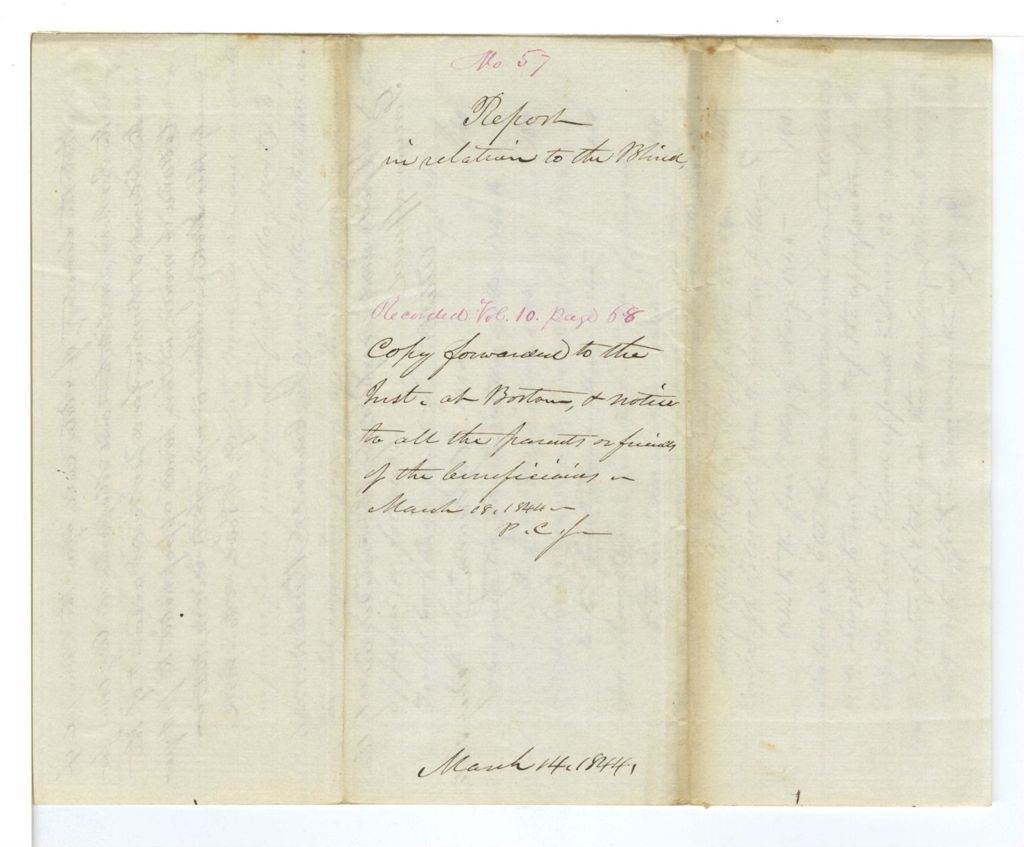 No 57
Report
in relation to the Blind,
Recorded Vol. 10. page 68
Copy forwarded to the
Inst. at Boston, & notice
to all the parents or friends
of the beneficiaries —
March 18. 1844 —
P. C. Jn
March 14. 1844.